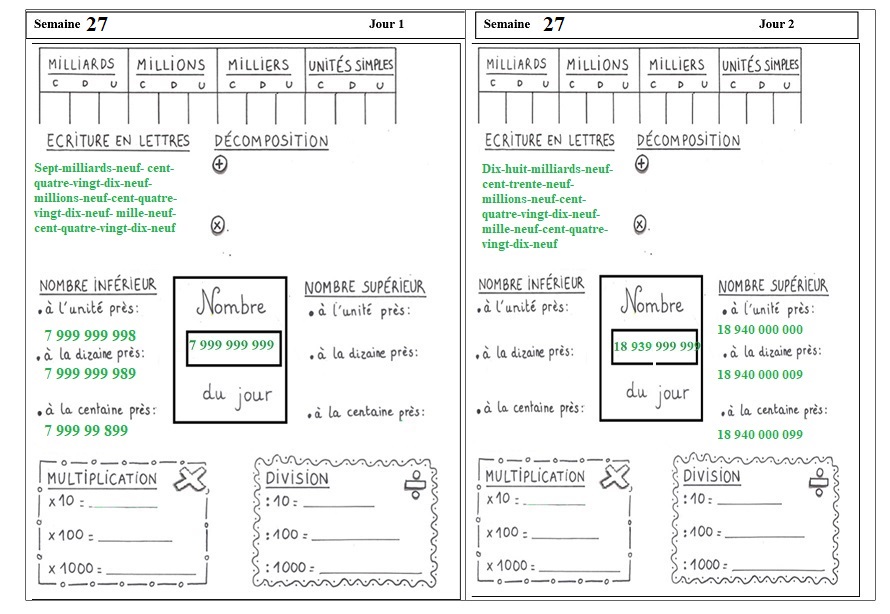 Semaine 27 Jour 1
MILLIARDS MILLIONS MILLIERS UNITÉS SIMPLES
C D U C D U C D U C D U
ECRITURE EN LETTRES DÉCOMPOSITION
Sept-milliards-neuf- cent-
quatre-vingt-dix-neuf-
millions-neuf-cent-quatre-
vingt-dix-neuf- mille-neuf-
cent-quatre-vingt-dix-neuf
+
x.
NOMBRE INFÉRIEUR
• à l'unité près:
7 999 999 998
• à la dizaine près:
7 999 999 989
• à la centaine près:
7 999 99 899
Nombre
7 999 999 999
du jour
NOMBRE SUPÉRIEUR
• à l'unité près:
• à la dizaine près:
• à la centaine près:
MULTIPLICATION X
x10 = ________
x100 = ________
x1000 = ________
DIVISION ÷
:10 = ________
:100 = ________
:1000 = ________
Semaine 27 Jour 2
MILLIARDS MILLIONS MILLIERS UNITÉS SIMPLES
C D U C D U C D U C D U
ECRITURE EN LETTRES DÉCOMPOSITION
Dix-huit-milliards-neuf-
cent-trente-neuf-
millions-neuf-cent-
quatre-vingt-dix-neuf-
mille-neuf-cent-quatre-
vingt-dix-neuf
+
x.
NOMBRE INFÉRIEUR
• à l'unité près:
• à la dizaine près:
• à la centaine près:
Nombre
18 939 999 999
du jour
NOMBRE SUPÉRIEUR
• à l'unité près:
18 940 000 000
• à la dizaine près:
18 940 000 009
• à la centaine près:
18 940 000 099
MULTIPLICATION X
x10 = ________
x100 = ________
x1000 = ________
DIVISION ÷
:10 = ________
:100 = ________
:1000 = ________